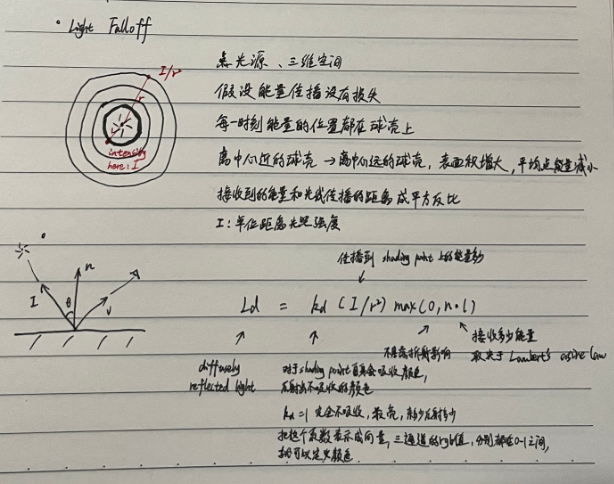 · Light Falloff
点光源、三维空间
I/r²
r
假设能量传播没有损失
每一时刻能量的位置都在球壳上
intensity
here: I
离中心近的球壳 → 离中心远的球壳, 表面积增大, 平均点能量减小
接收到的能量和光线传播的距离成平方反比
I: 单位距离光照强度
传播到 shading point 上的能量
n
I
θ
v
Ld = kd (I/r²) max(0, n·l)
diffusely
reflected light
对于 shading point 自身会吸收颜色,
反射出不吸收的颜色
kd=1 完全不吸收, 最亮,
把这个系数表示成向量, 三通道的rgb值, 分别都在0-1之间,
就可以定义颜色
接收多少能量
取决于 Lambert's cosine law